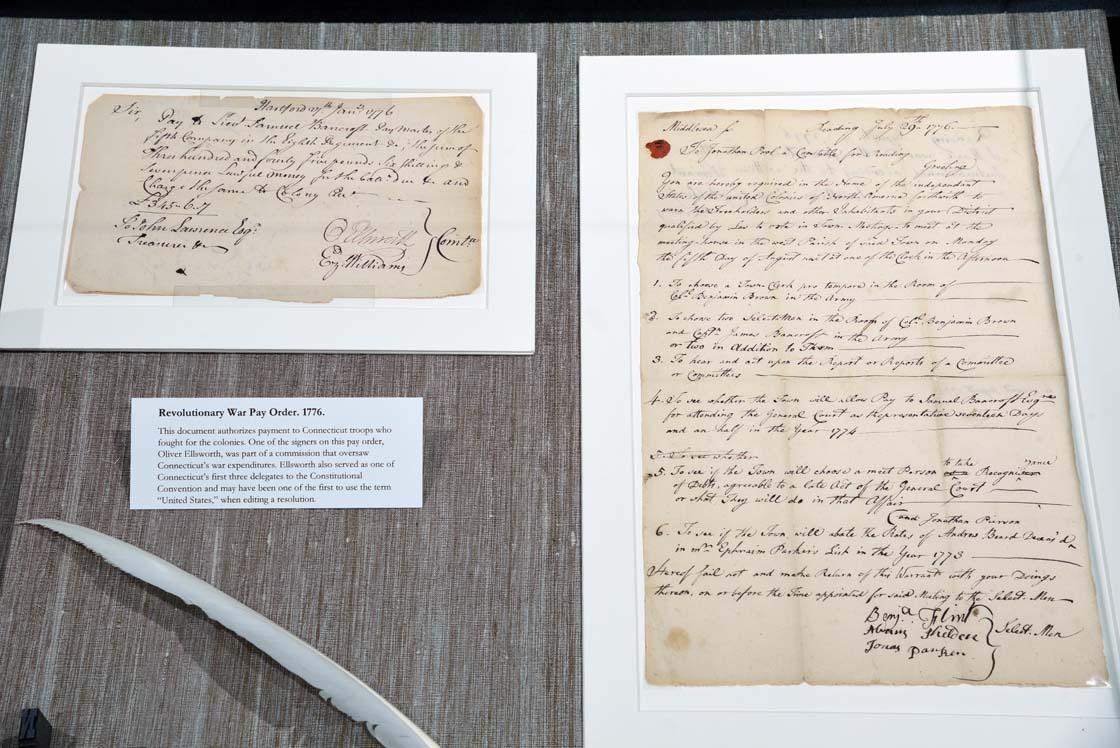 Hartford 17th Janry 1776
Sir,
Pay to Lieut Samuel Bancroft Pay Master of the
fifth Company in the Eighth Regiment &c; the sum of
Three hundred and fourty five pounds Six Shillings &
Seven pence Lawful money and
Charge the same to Colony
£345-6-7
To John Lawrence Esqr
Treasurer &c
O Ellsworth
Ezr Williams
Comtee
Revolutionary War Pay Order. 1776.
This document authorizes payment to Connecticut troops who
fought for the colonies. One of the signers on this pay order,
Oliver Ellsworth, was part of a commission that oversaw
Connecticut's war expenditures. Ellsworth also served as one of
Connecticut's first three delegates to the Constitutional
Convention and may have been one of the first to use the term
"United States," when editing a resolution.
Middlesex ss. Reading July 29th 1776.
To Jonathan Pool a Constable for Reading
Greeting
You are hereby required in the Name of the independant
States of the united Colonies of North America forthwith to
warn the Freeholders and other Inhabitants in your District
qualified by Law to vote in Town Meetings to meet at the
meeting-house in the west Parish of said Town on Monday
the fifth Day of August next at one of the Clock in the Afternoon
1. To choose a Town-Clerk pro tempore in the Room of
Colo Benjamin Brown in the Army
2. To choose two Select-Men in the Room of Colo Benjamin Brown
and Captn James Bancroft in the Army
or two in Addition to Them
3. To hear and act upon the Report or Reports of a Committee
or Committees
4. To see whether the Town will allow Pay to Samuel Bancroft Esqr
for attending the General Court as Representative seventeen Days
and an half in the Year 1774
5. To see whether
5. To see if the Town will choose a meet Person to take Recognizance
of Debts, agreable to a late Act of the General Court
or what They will do in that Affair
and Jonathan Pierson
6. To see if the Town will abate the Rates of Andrew Beard
in mr Ephraim Parker's List in the Year 1773
Hereof fail not and make Return of this Warrant with your Doings
thereon, on or before the Time appointed for said Meeting to the Select-Men
Benja Flint
Sheldon
Jonas Parker
Select-Men